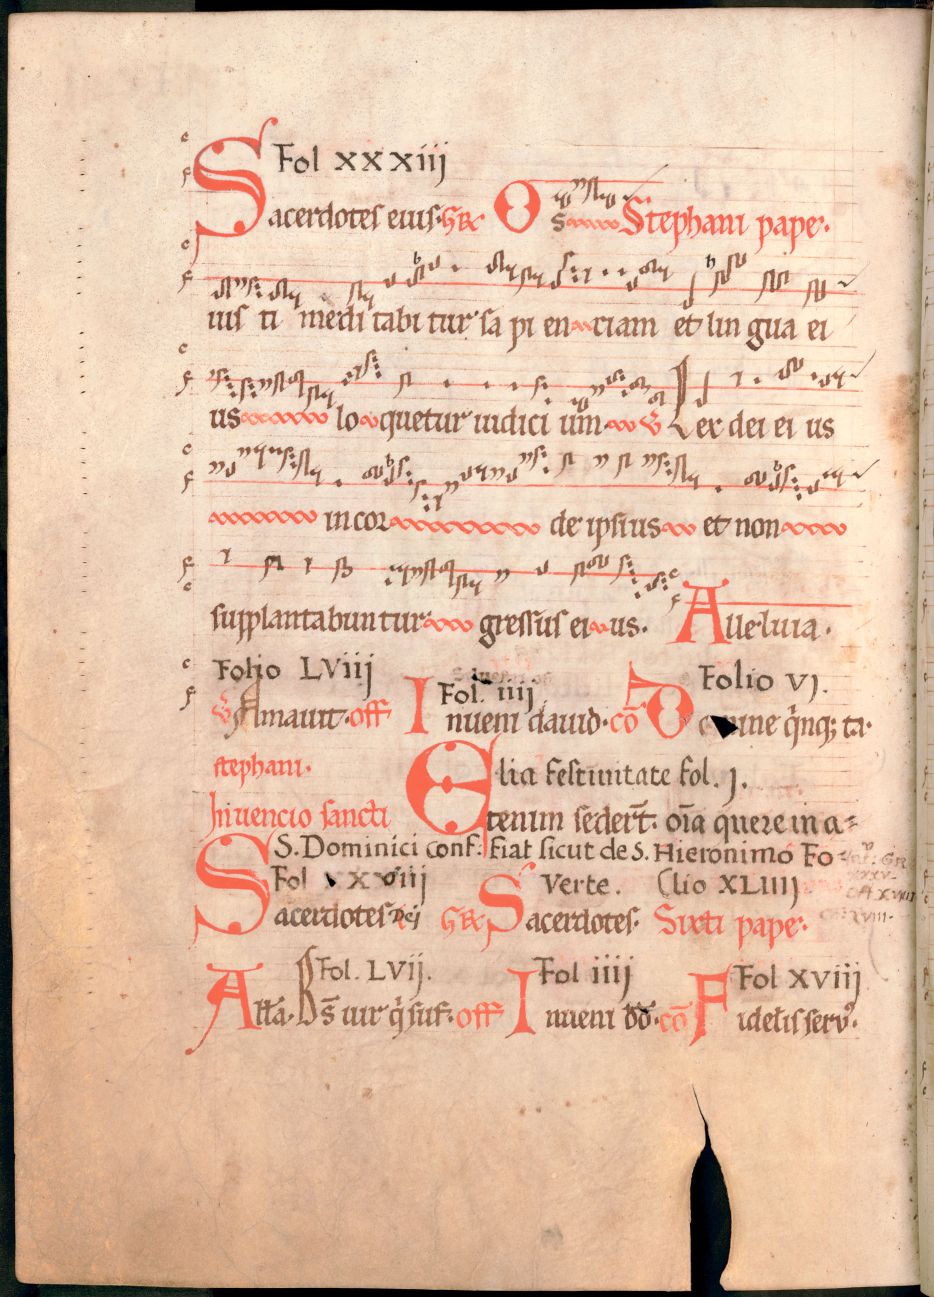 Fol xxxiij
Sacerdotes eius. GR Os Stephani pape.
ius ti medi tabi tur sa pi en ciam et lin gua ei
us lo quetur iudici um. V Lex dei ei us
in cor de ipsius et non
supplantabun tur gressus ei us. Alleluia.
Folio LViij Fol. iiij Folio VI.
V Amauit. off Inueni dauid. cō Domine q̄nq; ta.
stephani. Elia festiuitate fol. j.
Inuencio sancti Etenim seder̄t. oīa quere in a
S. Dominici conf. fiat sicut de S. Hieronimo Fo
Fol xxviij Verte. (lio XLIIIJ
Sacerdotes Dei GR Sacerdotes. Sixti pape.
Fol. LVij. Fol iiij Fol xviij
All'a. Bs̄ uir q̄ suf. off Inueni dd̄. cō Fidelis seru9.